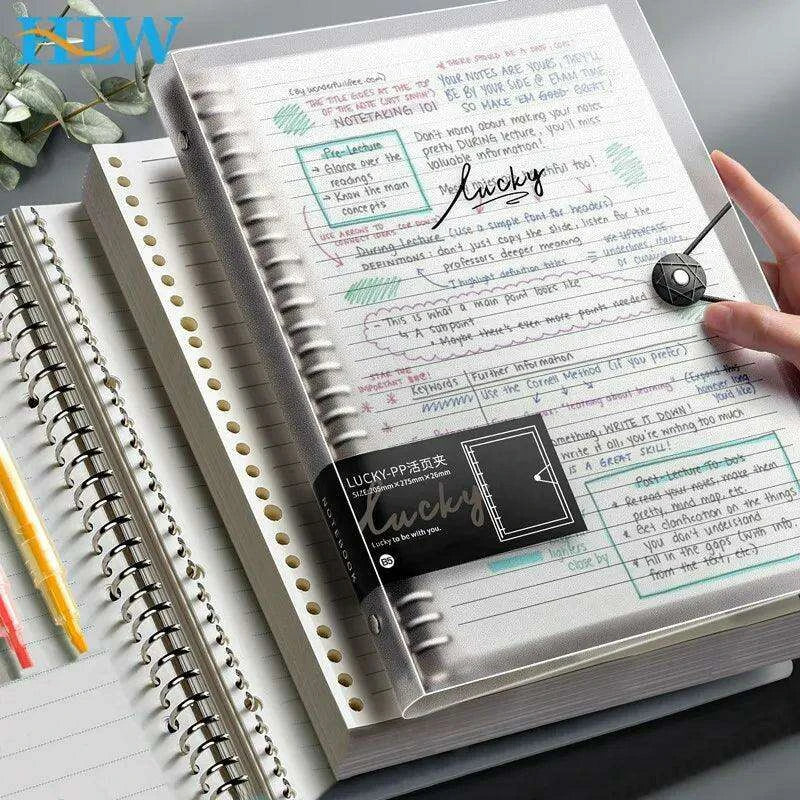 HLW
(by wonderfullfee.com)
THE TITLE GOES AT THE TOP
OF THE NOTE (JUST SAYIN')
NOTETAKING 101
THERE SHOULD BE A
YOUR NOTES ARE YOURS, THEY'LL
BE BY YOUR SIDE @ EXAM TIME
SO MAKE 'EM GOOD GREAT!
Pre-Lecture
→ Glance over the
readings
→ Know the main
concepts
Don't worry about making your notes
pretty DURING lecture, you'll miss
valuable information!
too!
Lucky
USE ARROWS TO
CONNECT IDEAS
During Lecture (use a simple font for headers)
listen for the
DEFINITIONS: don't just copy the slide,
professors deeper meaning
= use UPPERCASE,
underlines,
I highlight definition titles
- This is what a main point looks like
↳ A subpoint
• Maybe there's even more points needed
STAR THE
IMPORTANT
Keywords
Further Information
Use the Cornell Method (if you prefer)
"learning about learning"
(Expand this
however long
you'd like)
something, WRITE IT DOWN!
write it all, you're writing too much
IS A GREAT SKILL!
Post-Lecture To-Dos
• Reread your notes, make them
pretty, mind map, etc.
• Get clarification on the things
you don't understand
• Fill in the gaps (with info.
from the text, etc.)
close by
LUCKY-PP活页夹
SIZE:205mm×275mm×26mm
Lucky
Lucky to be with you.
B5
NOTEBOOK